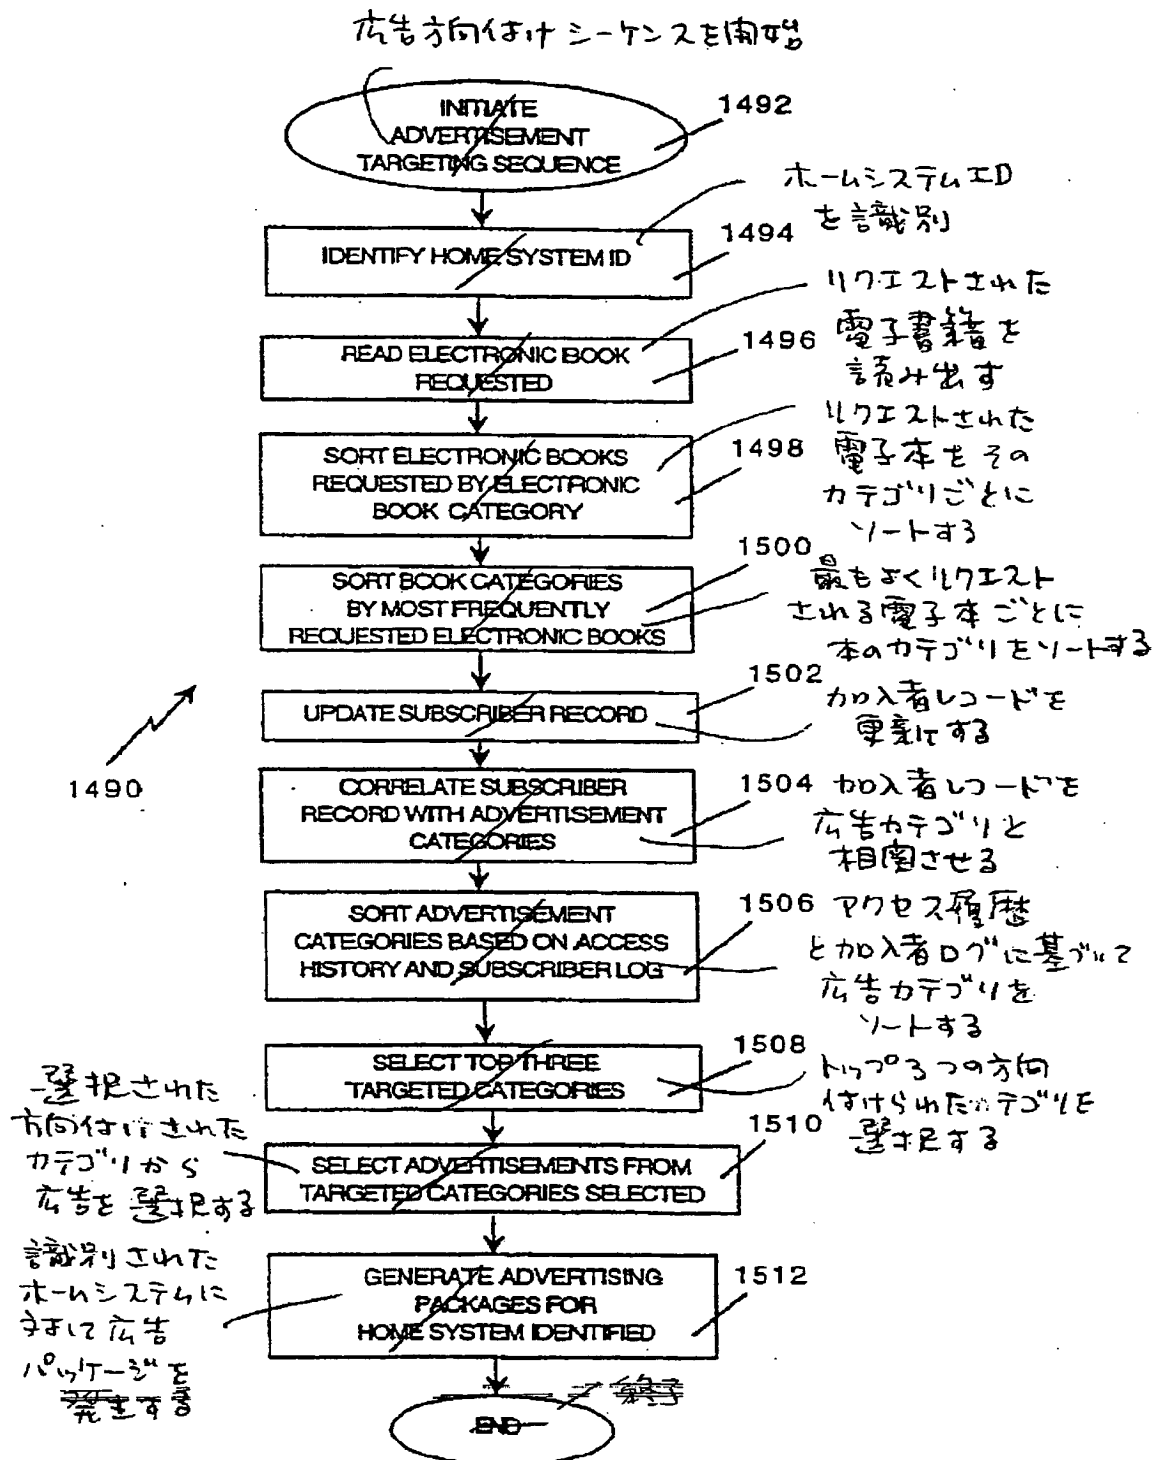 広告方向付け シーケンスを開始
INITIATE
ADVERTISEMENT
TARGETING SEQUENCE
1492
ホームシステムID
を識別
IDENTIFY HOME SYSTEM ID
1494
リクエストされた
電子書籍を
読み出す
READ ELECTRONIC BOOK
REQUESTED
1496
リクエストされた
電子本をその
カテゴリごとに
ソートする
SORT ELECTRONIC BOOKS
REQUESTED BY ELECTRONIC
BOOK CATEGORY
1498
最もよくリクエスト
される電子本ごとに
本のカテゴリをソートする
SORT BOOK CATEGORIES
BY MOST FREQUENTLY
REQUESTED ELECTRONIC BOOKS
1500
加入者レコードを
更新する
UPDATE SUBSCRIBER RECORD
1502
1490
加入者レコードを
広告カテゴリと
相関させる
CORRELATE SUBSCRIBER
RECORD WITH ADVERTISEMENT
CATEGORIES
1504
アクセス履歴
と加入者ログに基づいて
広告カテゴリを
ソートする
SORT ADVERTISEMENT
CATEGORIES BASED ON ACCESS
HISTORY AND SUBSCRIBER LOG
1506
トップ3つの方向
付けられたカテゴリを
選択する
SELECT TOP THREE
TARGETED CATEGORIES
1508
選択された
方向付けされた
カテゴリから
広告を選択する
SELECT ADVERTISEMENTS FROM
TARGETED CATEGORIES SELECTED
1510
識別された
ホームシステムに
対して広告
パッケージを
発生する
GENERATE ADVERTISING
PACKAGES FOR
HOME SYSTEM IDENTIFIED
1512
終了
END